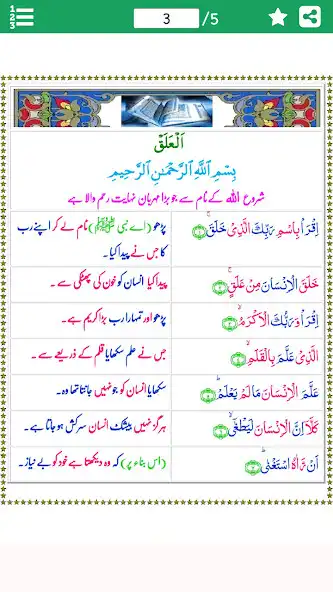 1
2
3
3 /5
اَلْعَلَقْ
بِسْمِ اللّٰهِ الرَّحْمٰنِ الرَّحِيْمِ
شروع اللّٰہ کے نام سے جو بڑا مہربان نہایت رحم والا ہے
اِقْرَاْ بِاسْمِ رَبِّكَ الَّذِىْ خَلَقَۚ ۝۱
پڑھو (اے نبی ﷺ) نام لے کر اپنے رب
کا جس نے پیدا کیا۔
خَلَقَ الْاِنْسَانَ مِنْ عَلَقٍۚ ۝۲
پیدا کیا انسان کو خون کی پھٹکی سے ۔
اِقْرَاْ وَ رَبُّكَ الْاَكْرَمُۙ ۝۳
پڑھو اور تمہارا رب بڑا کریم ہے۔
الَّذِىْ عَلَّمَ بِالْقَلَمِۙ ۝۴
جس نے علم سکھایا قلم کے ذریعے سے ۔
عَلَّمَ الْاِنْسَانَ مَا لَمْ يَعْلَمْؕ ۝۵
سکھایا انسان کو جو نہیں جانتا تھا وہ۔
كَلَّاۤ اِنَّ الْاِنْسَانَ لَيَطْغٰٓىۙ ۝۶
ہرگز نہیں بیشک انسان سرکش ہو جاتا ہے۔
اَنْ رَّاٰهُ اسْتَغْنٰىؕ ۝۷
(اس بناء پر) کہ وہ دیکھتا ہے خود کو بے نیاز۔